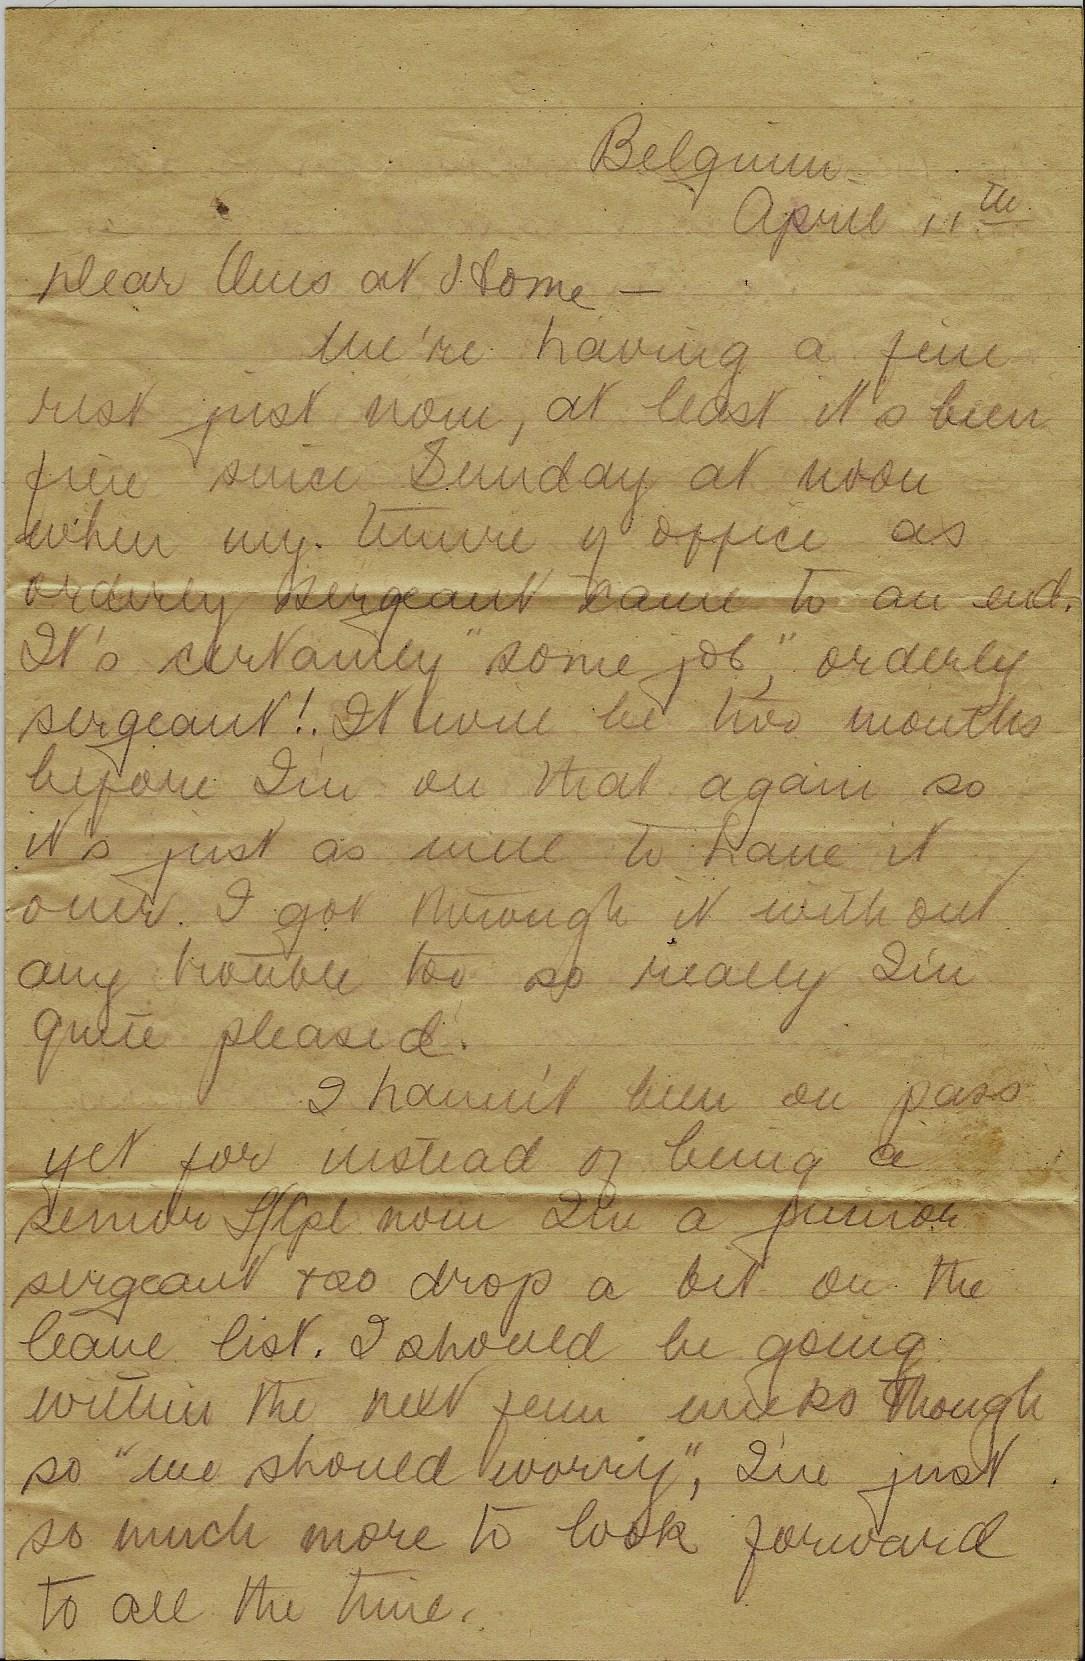 Belgium
April 11th
Dear Ones at Home —
We're having a fine
rest just now, at least it's been
fine since Sunday at noon
when my tenure of office as
orderly sergeant came to an end.
It's certainly "some job," orderly
sergeant! It will be two months
before I'm on that again so
it's just as well to have it
over. I got through it without
any trouble too so really I'm
quite pleased.
I haven't been on pass
yet for instead of being a
senior L/Cpl now I'm a junior
sergeant + so drop a bit on the
leave list. I should be going
within the next few weeks though
so "we should worry", I've just
so much more to look forward
to all the time.